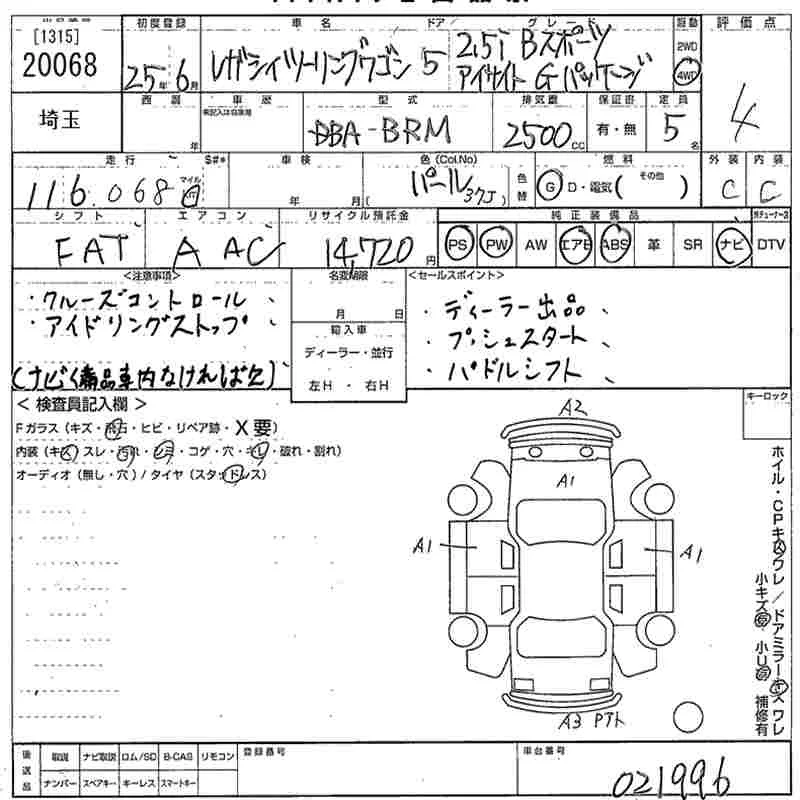 [1315]
20068
初度登録
25年6月
車名 ドア/ グレード
レガシイツーリングワゴン 5
2,5i Bスポーツ
アイサイト Gパッケージ
駆動
2WD
4WD
評価点
4
埼玉
西暦
年
車歴
未記入は自家用
型式
DBA-BRM
排気量
2500CC
保証書
有・無
定員
5名
走行 S#*
116,068
マイル
km
車検
年 月(
色(Col.No)
パール 37J)
色替
燃料
G D・電気( その他 )
外装 内装
C C
シフト
FAT
エアコン
A AC
リサイクル預託金
14,720円
純正装備品
PS PW AW エアB ABS 革 SR ナビ DTV
<注意事項>
・クルーズコントロール、
・アイドリングストップ、
(ナビく備品車内なければ欠)
名変期限
月 日
輸入車
ディーラー・並行
左H・右H
<セールスポイント>
・ディーラー出品、
・プッシュスタート、
・パドルシフト、
キーロック
<検査員記入欄>
Fガラス(キズ・飛石・ヒビ・リペア跡・X要)
内装(キズ スレ・汚れ・シミ・コゲ・穴・キレ・破れ・割れ)
オーディオ(無し・穴)/タイヤ(スタッドレス)
A2
A1
A1
A1
A3 Pアト
ホイル・CPキズワレ/ドアミラーキズワレ
小キズ有 小U有 補修有
後送品
取説 ナビ取説 ロム/SD B-CAS リモコン
ナンバー スペアキー キーレス スマートキー
登録番号
車台番号
021996